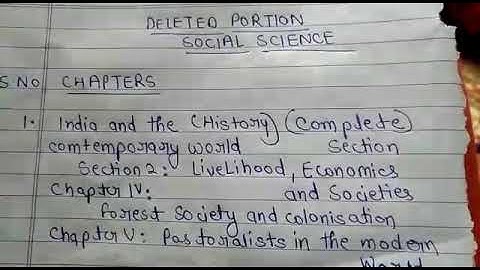 DELETED PORTION
SOCIAL SCIENCE
S.NO CHAPTERS
1. India and the (History) (Complete)
comtemporary world Section
Section 2: LiveLihood, Economics
Chapter IV: and Societies
forest Society and colonisation
Chapter V: Pastoralists in the modern
World